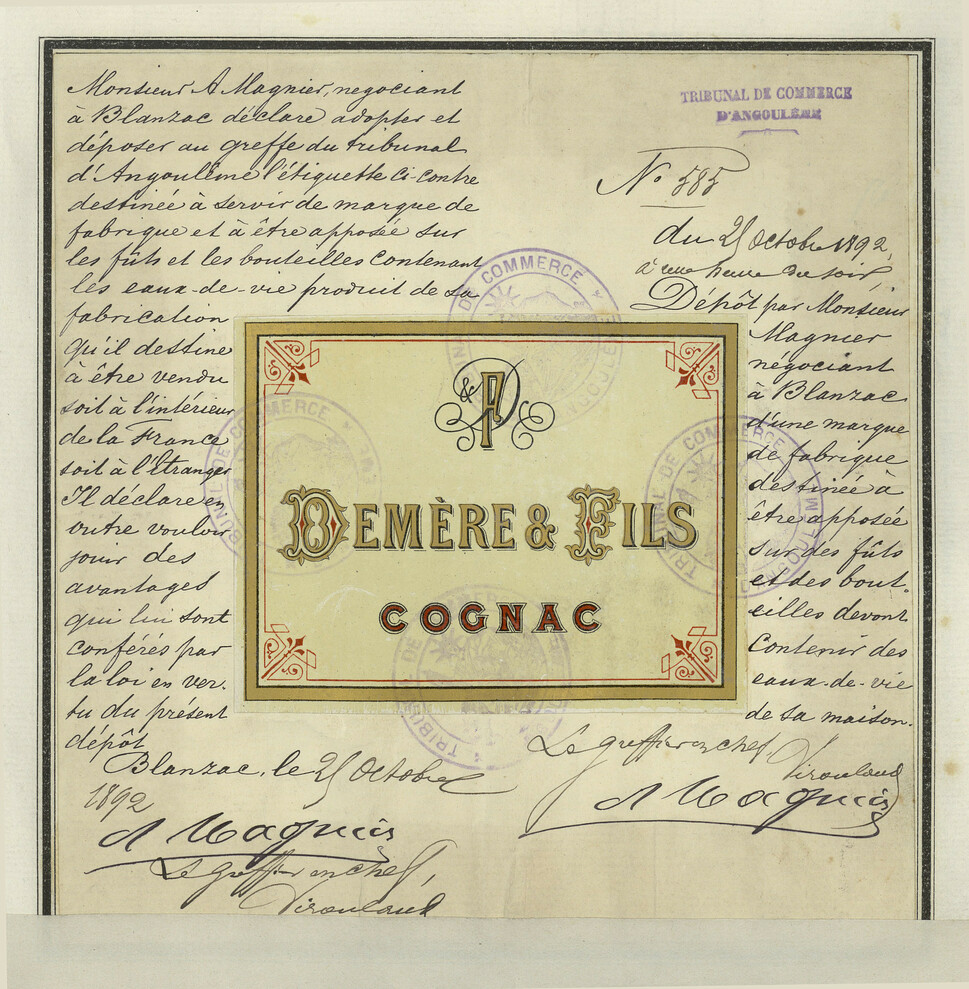 Monsieur A Magnier, negociant
à Blanzac déclare adopter et
déposer au greffe du tribunal
d'Angoulême l'étiquette ci-contre
destinée à servir de marque de
fabrique et à être apposée sur
les fûts et les bouteilles contenant
les eaux-de-vie produit de sa
fabrication
qu'il destine
à être vendu
soit à l'intérieur
de la France
soit à l'Etranger
Il déclare en
outre vouloir
jouir des
avantages
qui lui sont
conférés par
la loi en ver-
tu du présent
dépôt
Blanzac, le 25 Octobre
1892
A Magnier
Le greffier en chef,
Virouland
TRIBUNAL DE COMMERCE
D'ANGOULÊME
N° 585
du 25 Octobre 1892,
à une heure du soir
Dépôt par Monsieur
Magnier
négociant
à Blanzac
d'une marque
de fabrique
destinée à
être apposée
sur des fûts
et des bout-
eilles devant
contenir des
eaux-de-vie
de sa maison.
Le greffier en chef
Virouland
A Magnier
DEMÈRE & FILS
COGNAC